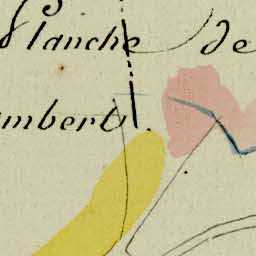 Planche de
mbert